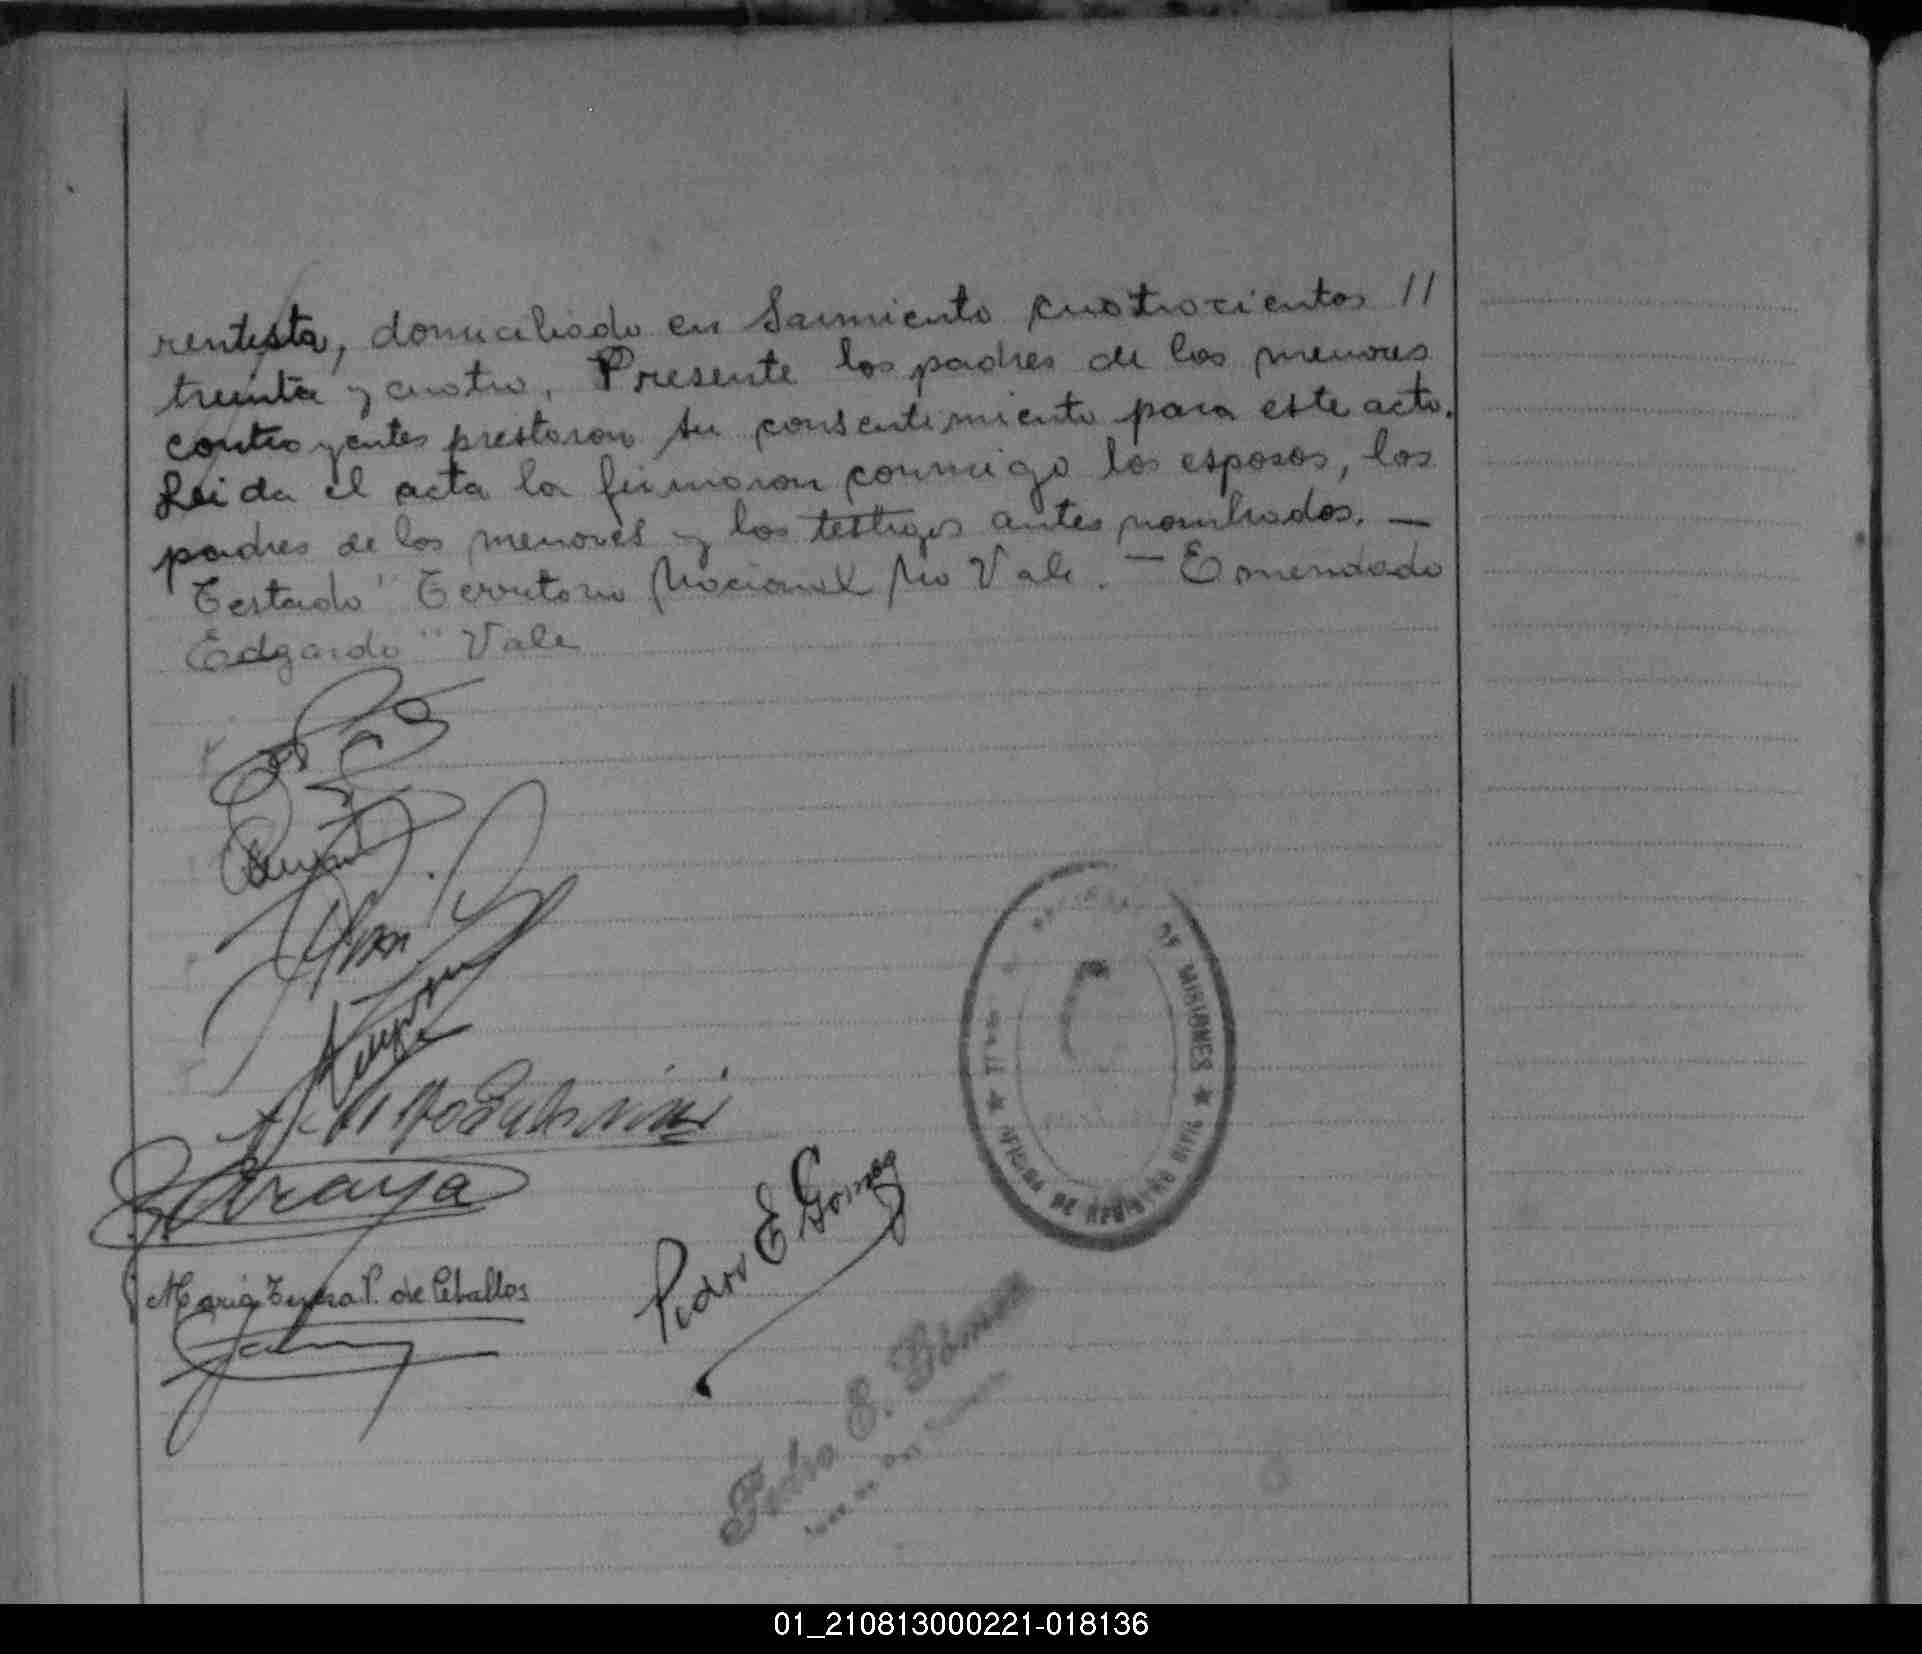 rentista, domiciliado en Sarmiento cuatrocientos //
treinta y cuatro. Presente los padres de los menores
contrayentes prestaron su consentimiento para este acto.
Leida el acta la firmaron conmigo los esposos, los
padres de los menores y los testigos antes nombrados. —
Testado "Territorio Nacional No Vale. — Enmendado
Edgardo" Vale
Araya
Maria Teresa P. de Ceballos
Pedro E Gomez
DE MISIONES ★ OFICINA DE REGISTRO CIVIL ★
Pedro E. Gómez
01_210813000221-018136